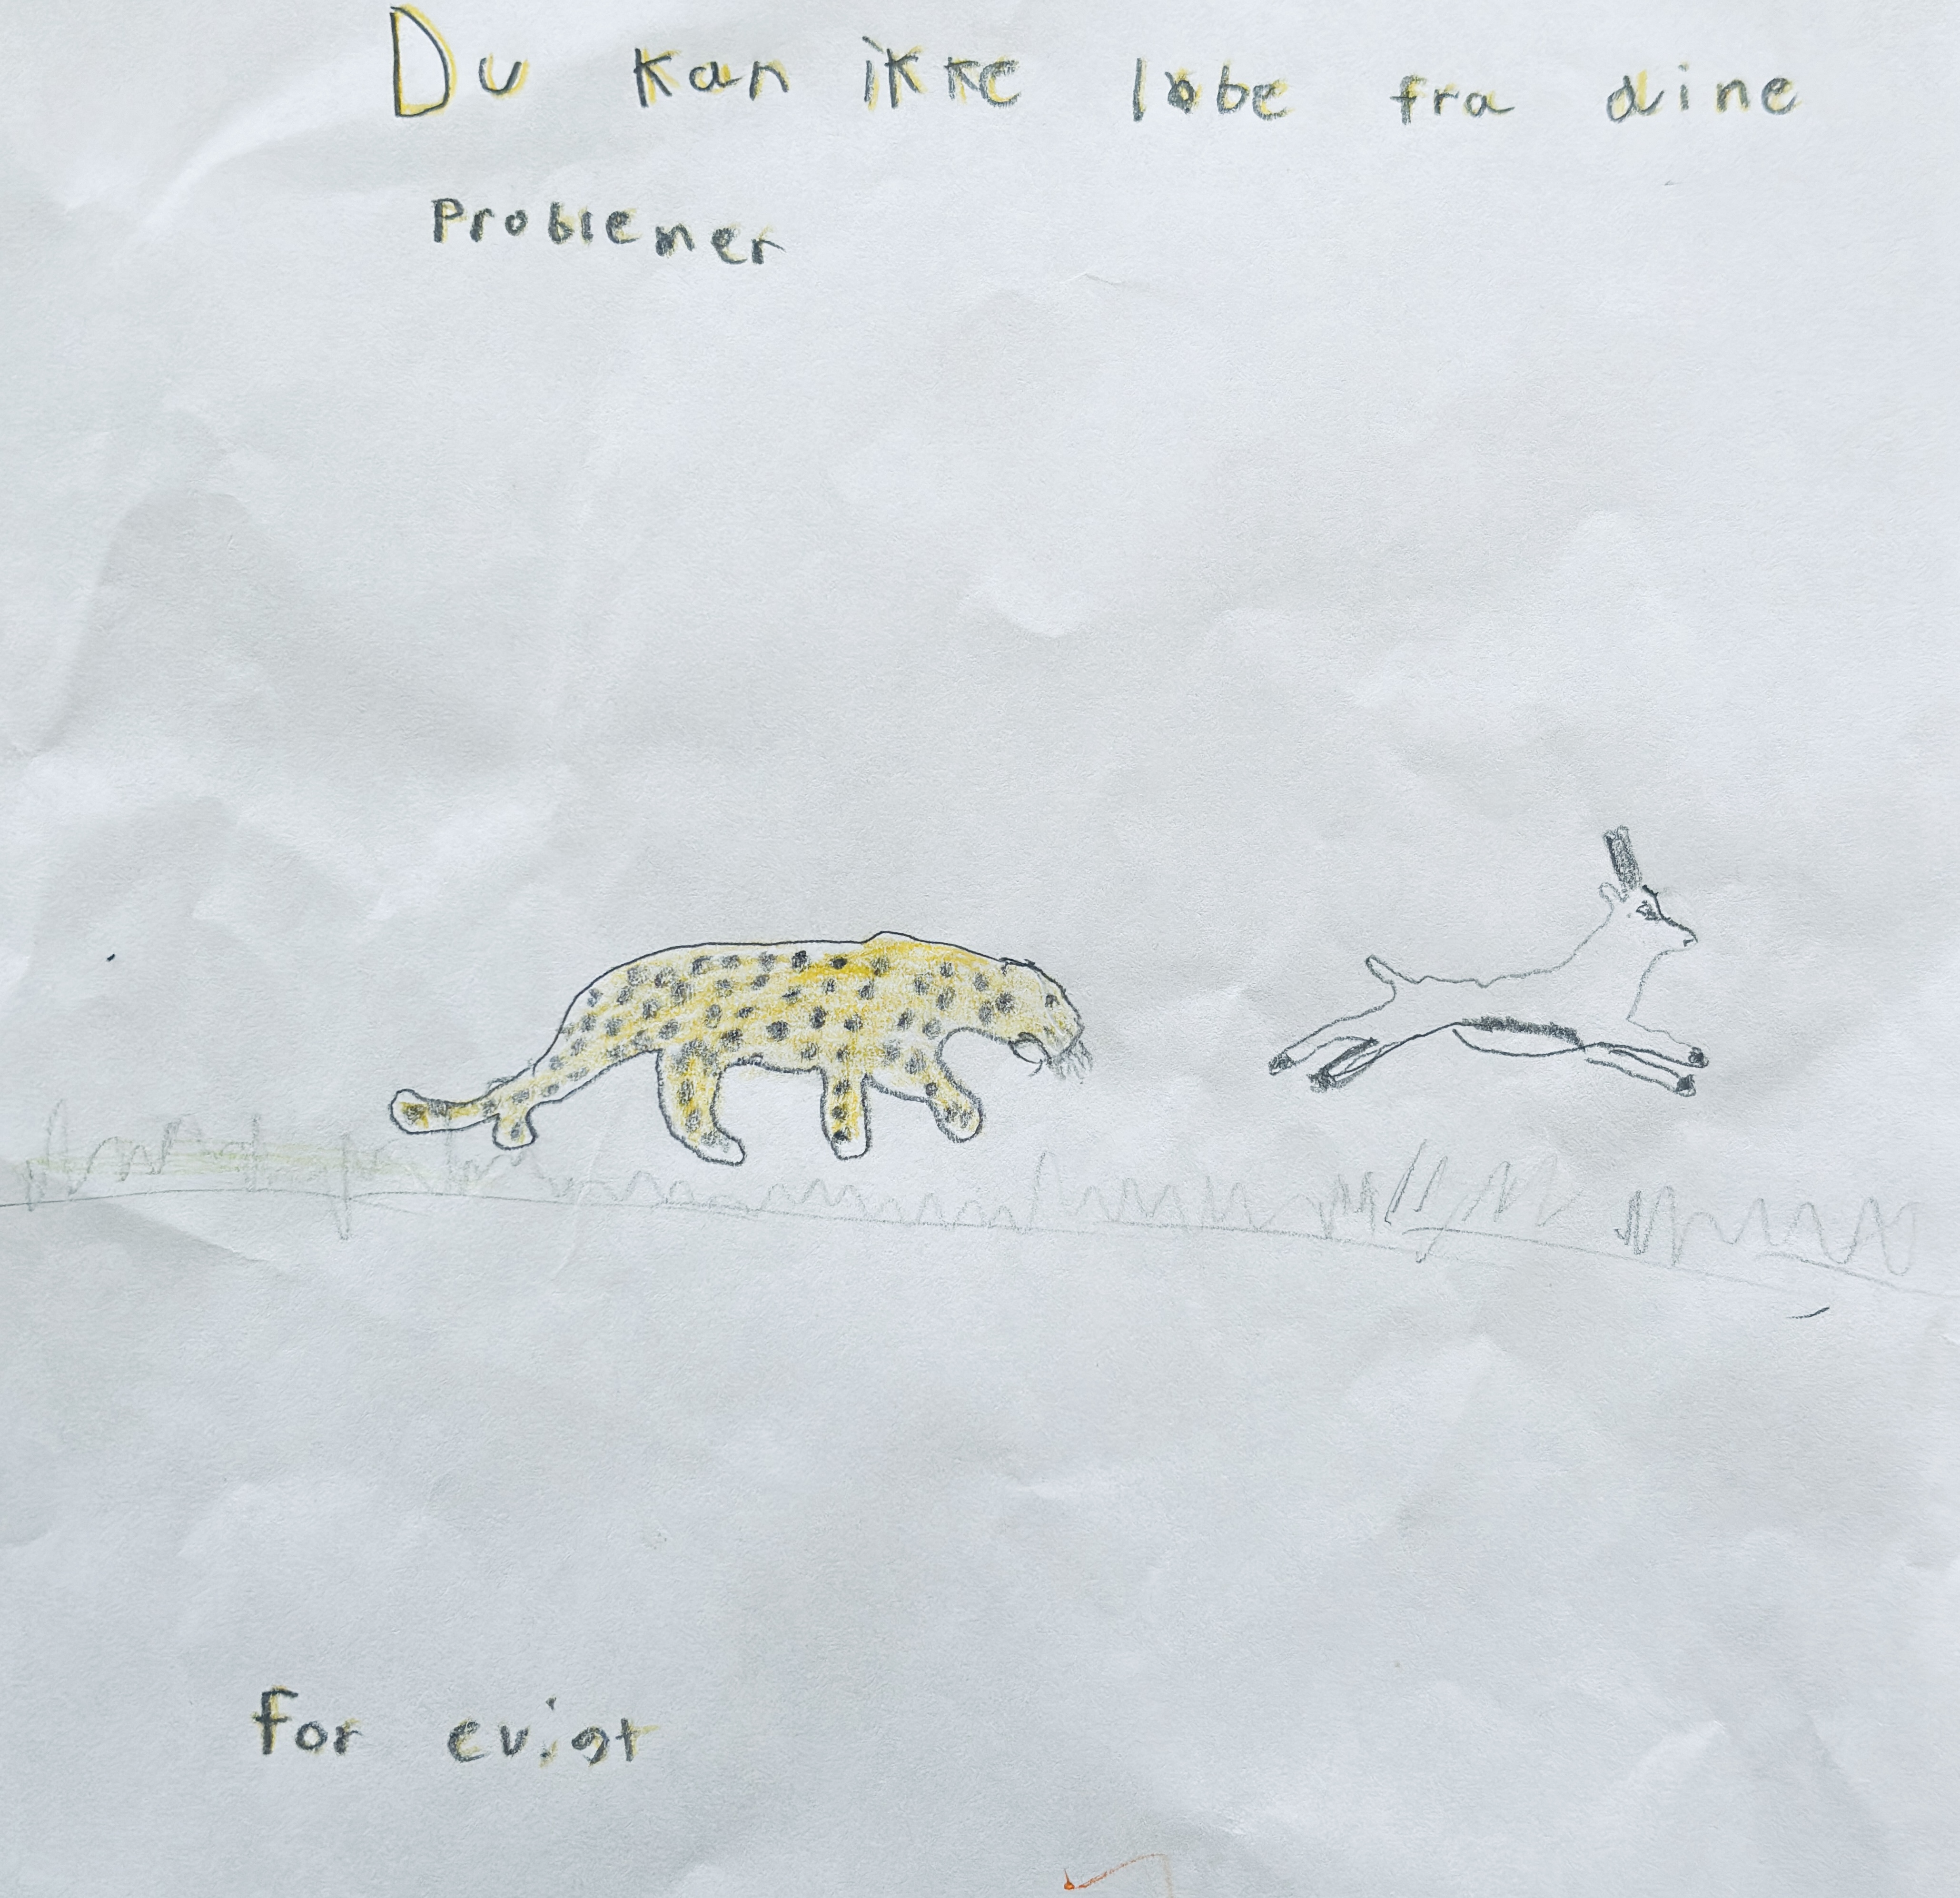 Du kan ikke løbe fra dine
Problemer
for evigt